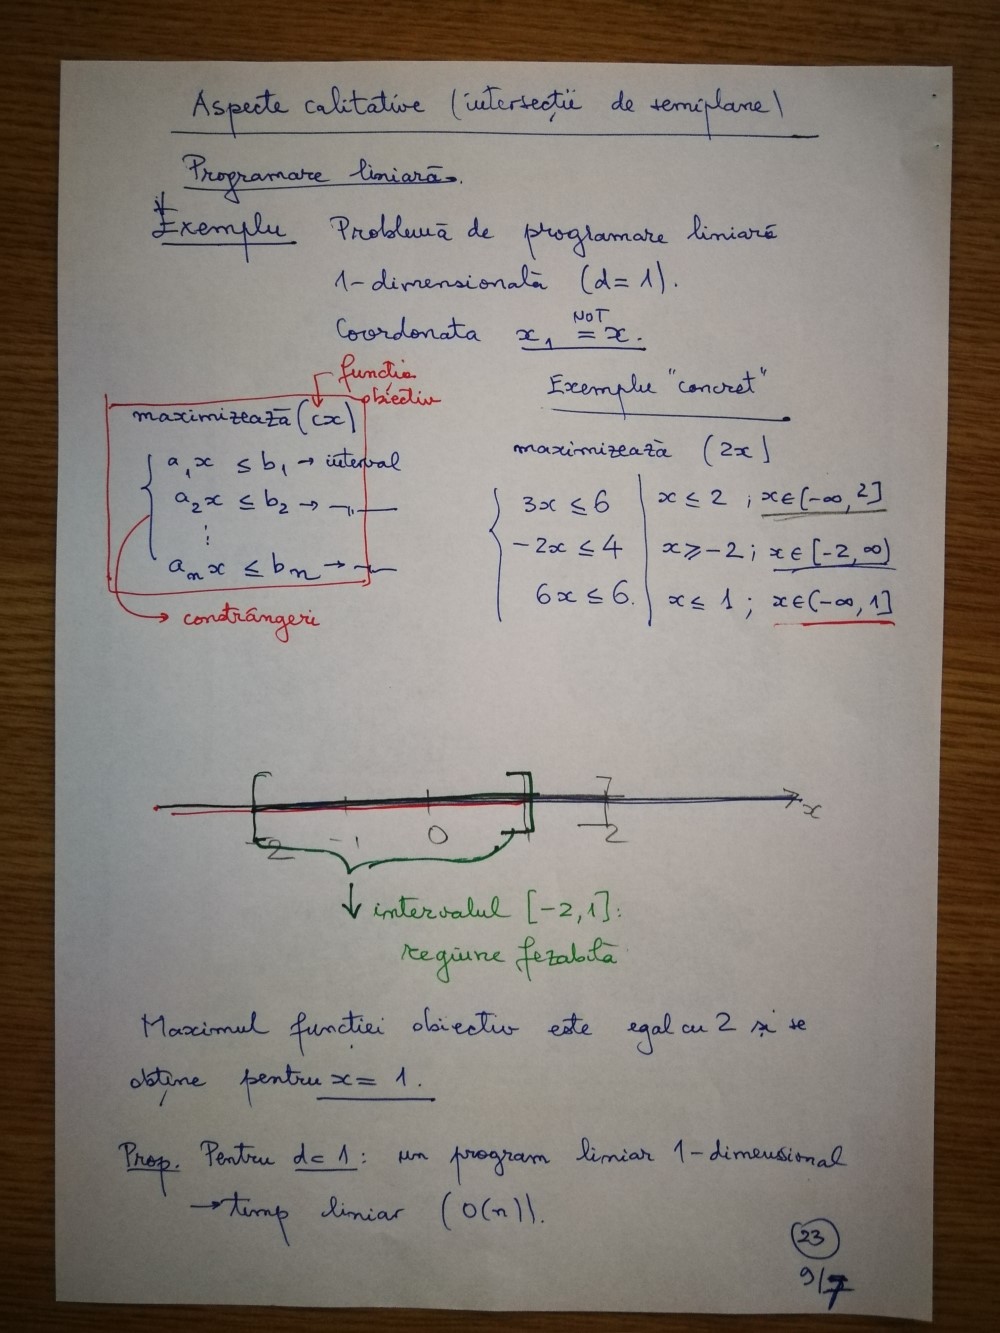 Aspecte calitative (intersecții de semiplane)
Programare liniară.
Exemplu Problemă de programare liniară
1-dimensională (d=1).
Coordonata x₁ = x.
NOT
funcția
obiectiv
maximizează (cx)
a₁x ≤ b₁ → interval
a₂x ≤ b₂ → —„—
⋮
aₙx ≤ bₙ → —„—
constrângeri
Exemplu "concret"
maximizează (2x)
3x ≤ 6 | x ≤ 2 ; x∈(-∞, 2]
-2x ≤ 4 | x ≥ -2 ; x∈[-2, ∞)
6x ≤ 6. | x ≤ 1 ; x∈(-∞, 1]
-2 -1 0 1 2 x
↓ intervalul [-2, 1]:
regiune fezabilă
Maximul funcției obiectiv este egal cu 2 și se
obține pentru x = 1.
Prop. Pentru d=1: un program liniar 1-dimensional
→ timp liniar (O(n)).
23
9/7